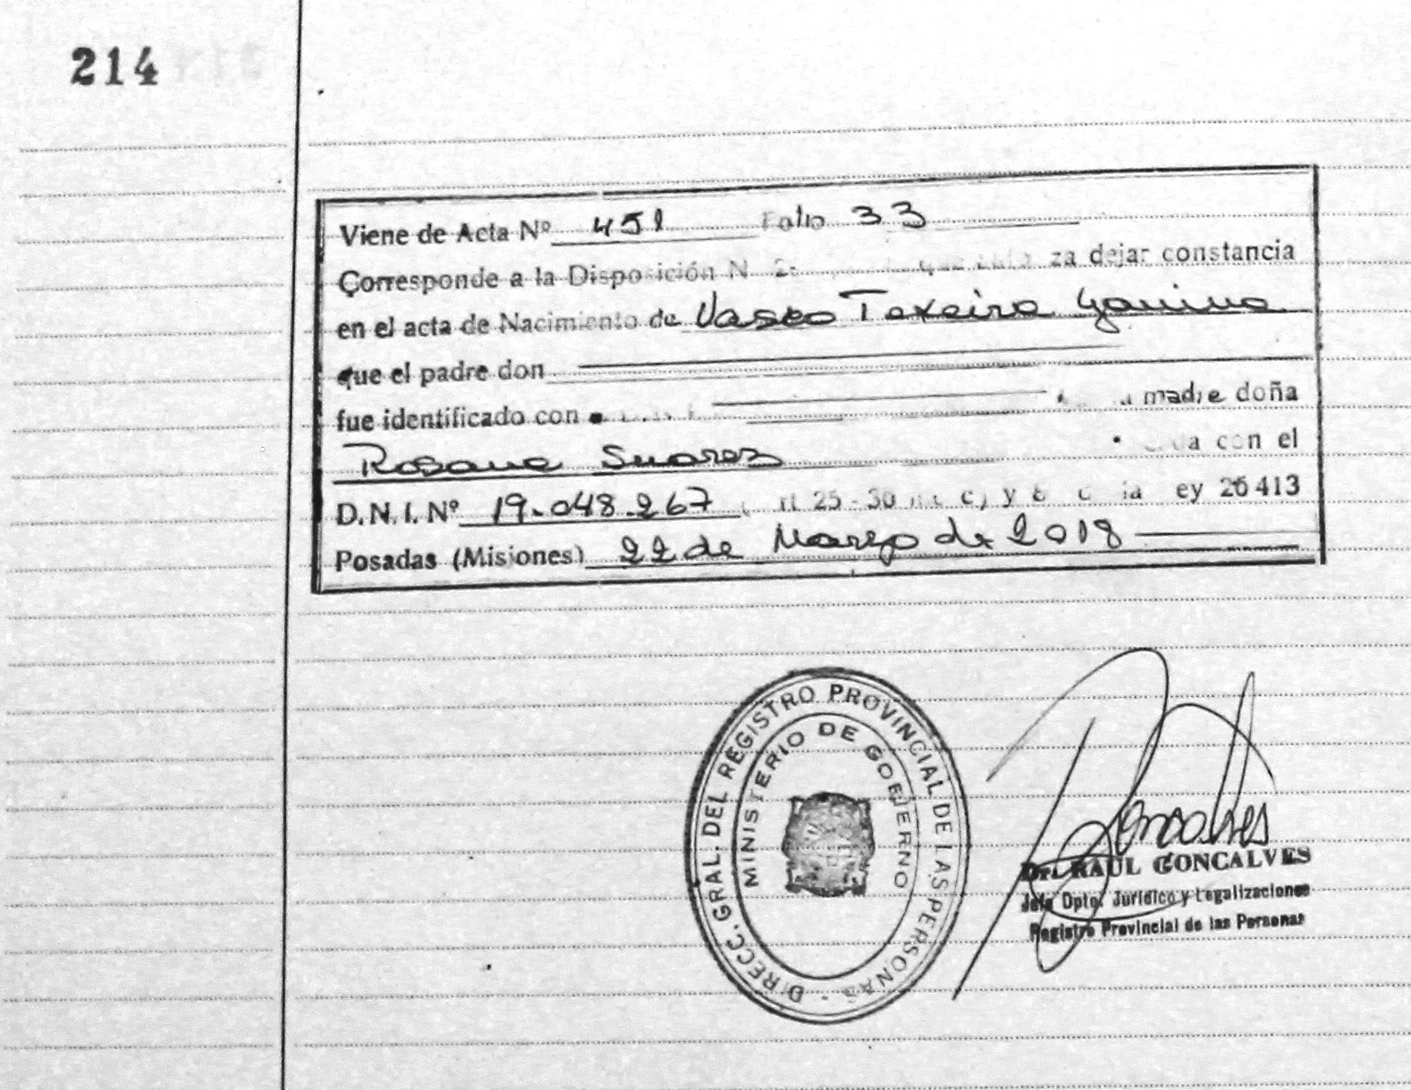 214
Viene de Acta Nº 451 Folio 33
Corresponde a la Disposición N za dejar constancia
en el acta de Nacimiento de Vasco Texeira Yanina
que el padre don
fue identificado con madre doña
Rosana Suarez con el
D.N.I. Nº 19.048.267 25-30 y ey 26413
Posadas (Misiones) 22 de Marzo de 2018
DIRECC. GRAL. DEL REGISTRO PROVINCIAL DE LAS PERSONAS -
MINISTERIO DE GOBIERNO
Goncalves
Dr. RAUL GONCALVES
Jefe Dpto. Jurídico y Legalizaciones
Registro Provincial de las Personas